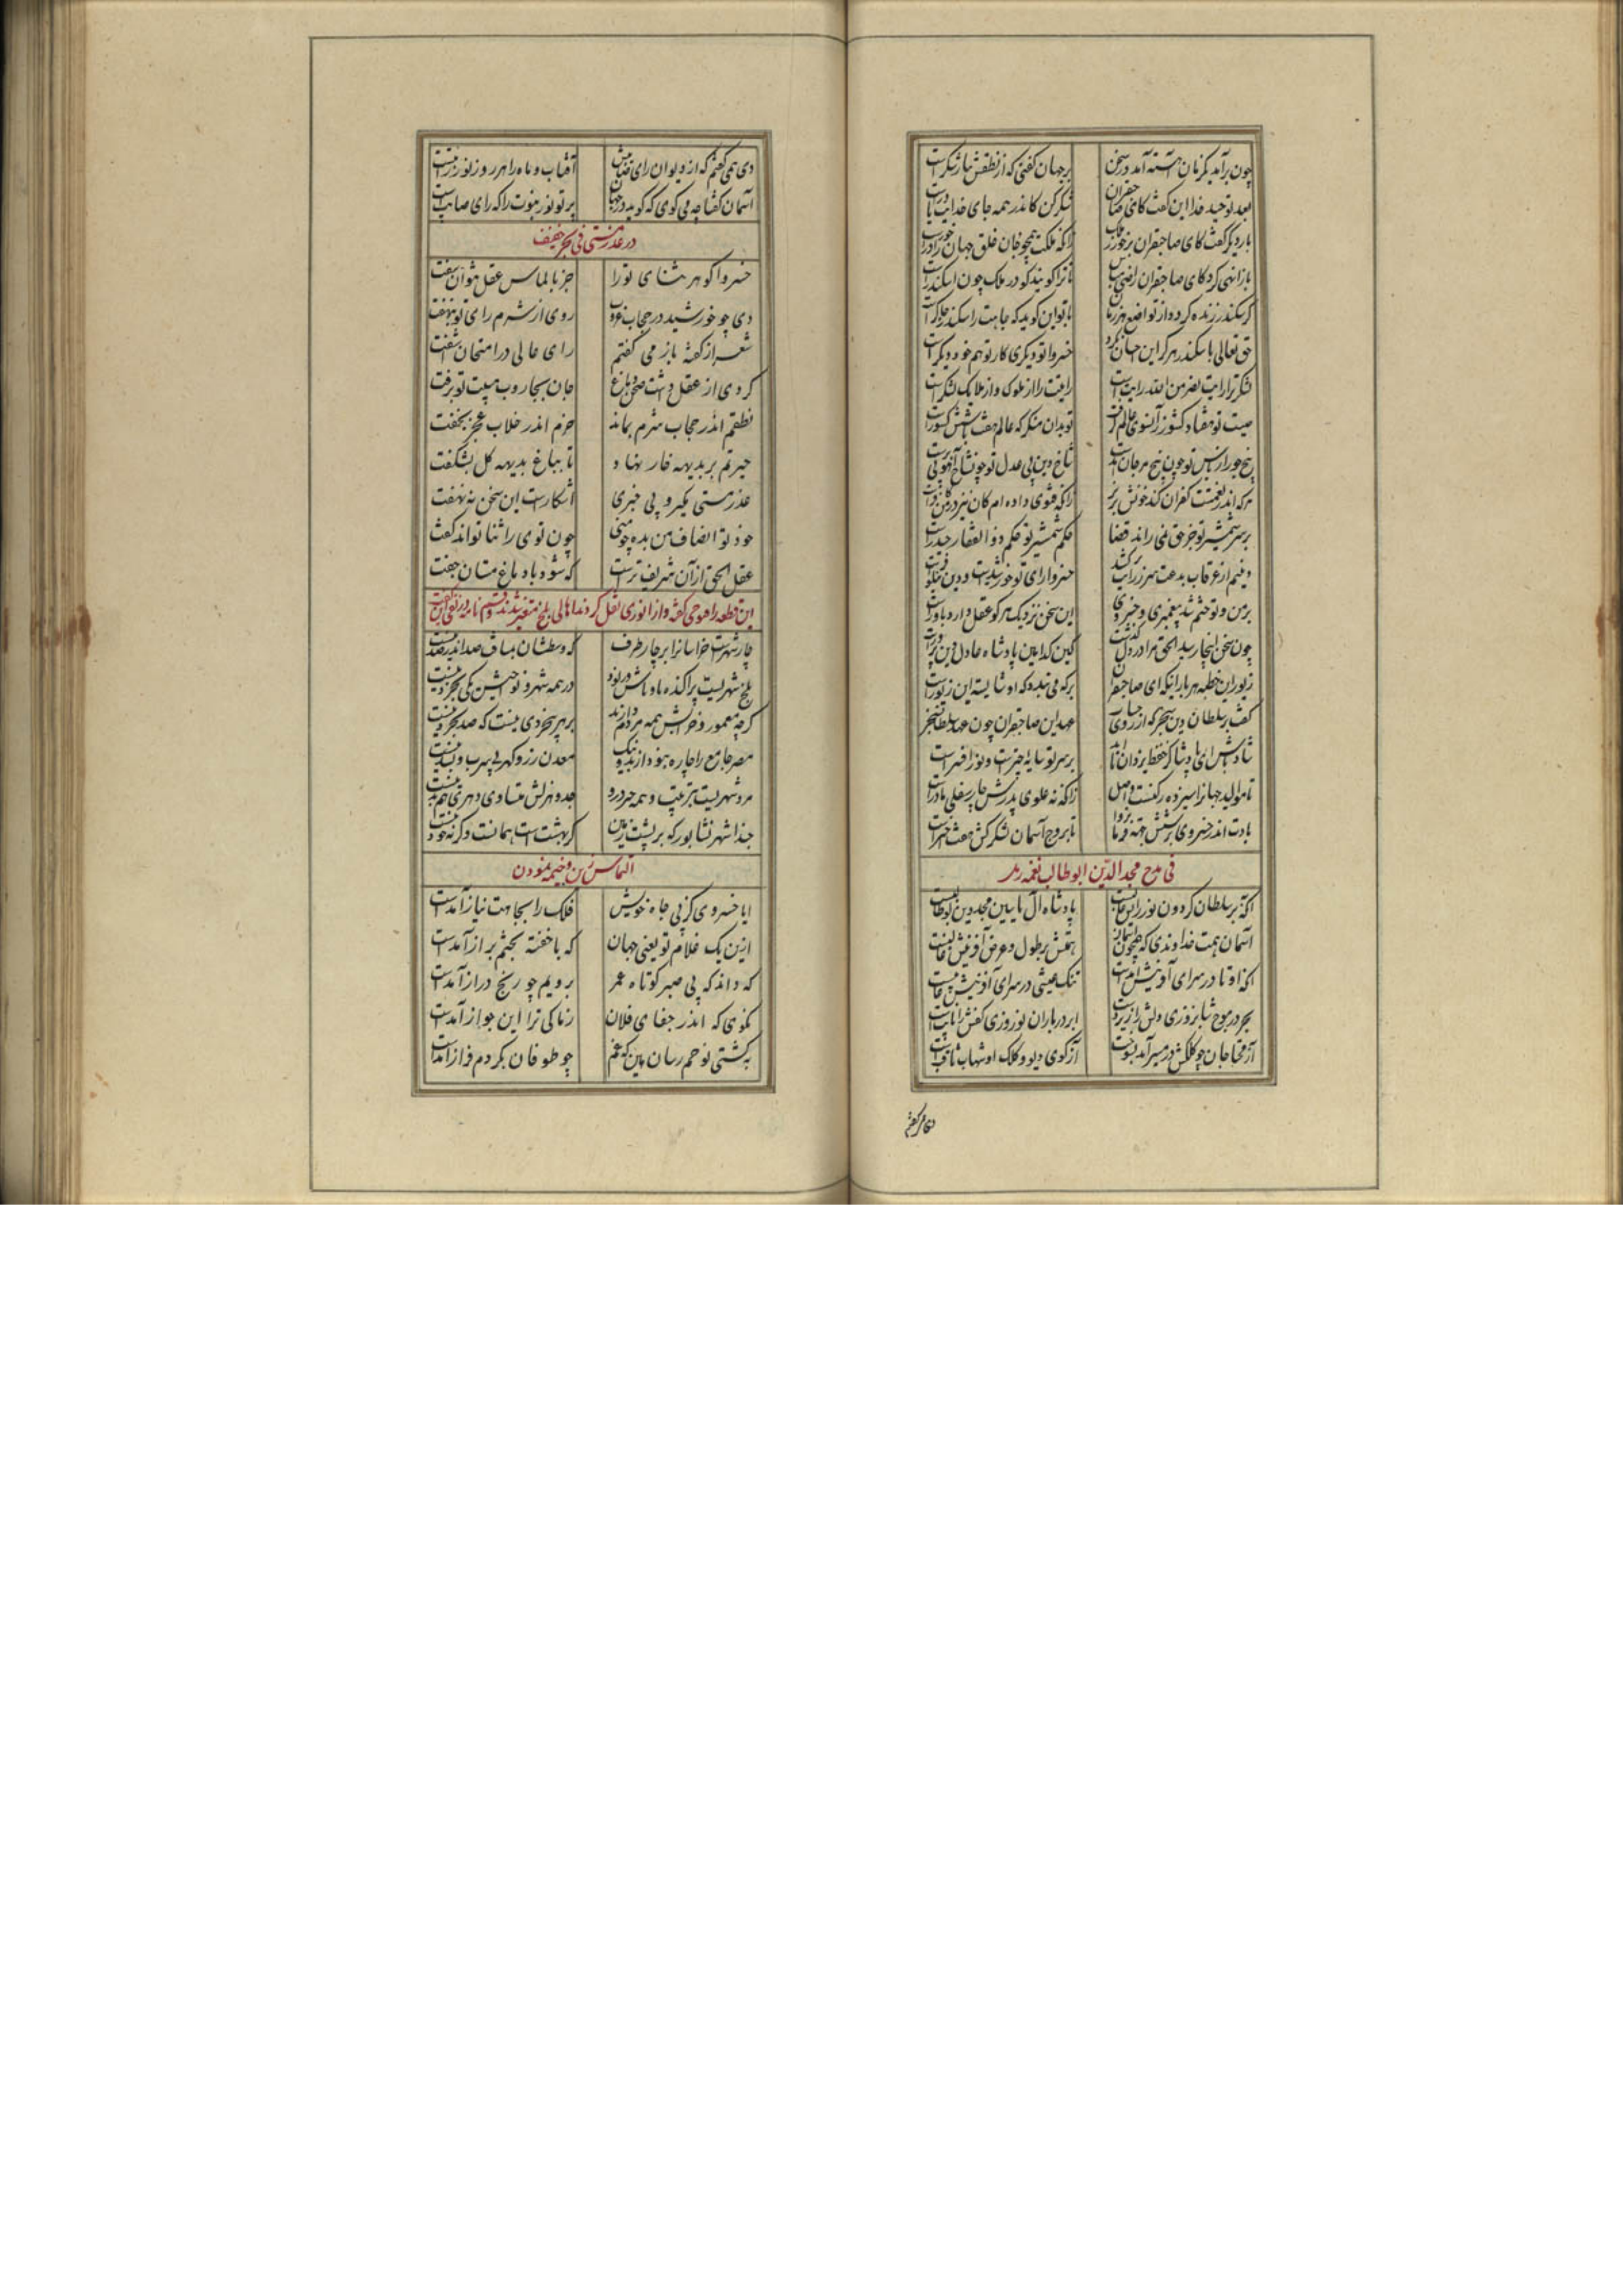 چون برآمد یکزمان آهسته آمد در سخن بر جهان گفتی که از نطقش نثار شکرست
بعد توحید خدا این گفت کای صاحبقران شکر کن کاندر همه جای خدایت یاورست
بار دیگر گفت کای صاحبقران برخور ز ملک زانکه ملکت همچو جان خلق جهان را درخورست
باز انهی کرد کای صاحبقران راضی مباش تا ترا گویند کو در ملک چون اسکندرست
گر سکندر زنده گردد از تواضع هر زمان با تو این گوید که جاهت را سکندر چاکرست
حق تعالی با سکندر هرگز این احسان نکرد خسروا تو دیگری کار تو هم خود دیگرست
لشکرت را رایت نصر من الله رایتست رایتت را از ملوک و از ملایک لشکرست
صیت تو هفتاد کشور زآنسوی عالم گرفت تو بدان منگر که عالم هفت یا شش کشورست
پنج جور از باس تو چون بیخ مرجان شاخ دین بی عدل تو چون شاخ آهو بی برست
هر که اندر نعمتت کفران کند خونش بریز زانکه فتوی داده ام کان نیز در من کافرست
بر سر شمشیر تو جز حق نمی راند قضا حکم شمشیر تو حکم ذوالفقار حیدرست
خسروا رای تو خورشیدست و دین نیلوفرست
بر من و تو ختم شد پیغمبری و خسروی این سخن نزدیک هر کو عقل دارد باورست
چون سخن اینجا رسید الحق مرا در دل گذشت کین کدامین پادشاه عادل دین پرورست
زیور این خطبه هر باری که ای صاحبقران بر که می بندد که او شایسته این زیورست
گفت بر سلطان دین سنجر که از روی عهد این صاحبقران چون عهد سلطان سنجرست
شاد باش ای پادشا کز حفظ یزدان تا ابد بر سر تو سایه چترست و نور افسرست
تا موالید جهان را سیزده رکنست اصل زانکه نه علوی پدرش و چار سفلی مادرست
بادت اندر خسروی بر شش جهة فرمان روا تا بروج آسمان لشکرکش هفت اخترست
فی مدح مجدالدین ابوطالب نعمه
آنکه بر سلطان گردون نور رایش غالبست پادشاه آل یاسین مجد دین بوطالبست
آسمان همت خداوندی که همچون آسمان همتش بر طول و عرض آفرینش غالبست
آنکه او تا در سرای آفرینش آمدست تنگ عیشی در سرای آفرینش غایبست
بحر در موج شبانروزی دلش را زیر دست ابر در باران نوروزی کفش را نایبست
آز محتاجان چو کلکش در مسیر آمد بسوخت آز گوی دیو و کلک او شهاب ثاقبست
دی همی گفتم
دی همی گفتم که از دیوان رای صائبش آفتاب و ماه را هر روز نور راتبست
آسمان گفتا چه می گوی که گوید در جهان پرتو نور نبوت را که رای صایبست
در عذر مستی فی بحر خفیف
خسروا گوهر ثنای ترا جز بالماس عقل نتوان سفت
دی چو خورشید در حجاب غروب روی از شرم رای تو بنهفت
شعر از گفته باز می گفتم رای عالی در امتحان آشفت
گردی از عقل داشت صحن دماغ جان بجاروب هیبت تو برفت
نطقم اندر حجاب شرم بماند خرم اندر خلاب عجز بخفت
حیرتم بر بدیهه خار نهاد تا بباغ بدیهه گل بشکفت
عذر مستی مگیر و بی خبری آشکارست این سخن نه نهفت
خود تو انصاف من بده چو منی چون توی را ثنا تواند گفت
عقل الحق از آن شریف ترست که شود با دماغ مستان جفت
این قطعه را فتوحی گفته و از انوری نقل کردند اهالی بلخ متغیر شدند و قسم نامه در نفی آن گفت
چار شهرست خراسان را بر چار طرف که وسطشان بمسافت صد اندر صد نیست
بلخ شهریست پراکنده باوباش و رنود در همه شهر و نواحیش یکی بخرد نیست
گرچه معمور و خرابش همه مردم دارند بر هر بیخردی نیست که صد بخرد نیست
مصر جامع را چاره نبود از بد و نیک معدن زر و گهر بی سرب و بسد نیست
مرو شهریست بترتیب و همه چیز درو جد و هزلش متساوی و هری هم بد نیست
حبذا شهر نشابور که بر پشت زمین گر بهشتست همانست و گر نه خود نیست
التماس زین و خیمه نمودن
ایا خسروی کز پی جاه خویش فلک را بجاهت نیاز آمدست
ازین یک غلام تو یعنی جهان که با خفته بختم براز آمدست
که داند که بی صبر کوتاه عمر برویم چو رنج دراز آمدست
نگوی که اندر جفای فلان زمان کی ترا این جواز آمدست
به کشتی نوحم رسان هین که غم چو طوفان بگردم فراز آمدست